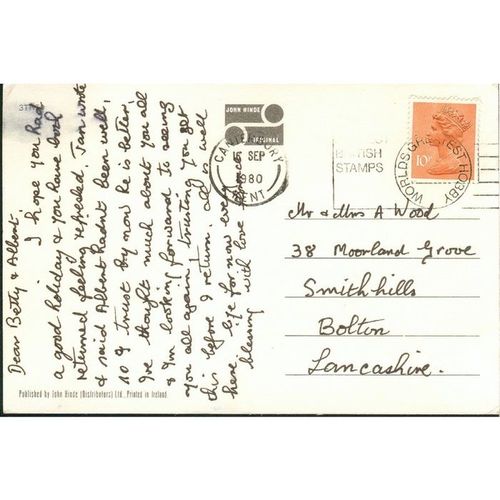 Dear Betty & Albert.
I hope you had
a good holiday & you have both
returned feeling refreshed, Ian wrote
& said Albert hadn't been well,
so I trust by now he is better,
I've thought much about you all
& I'm looking forward to seeing
you all again! trusting you get
this before I return. All is well
here, bye for now every
blessing with love
Published by John Hinde (Distributors) Ltd., Printed in Ireland
JOHN HINDE
ORIGINAL
CANTERBURY
SEP
1980
KENT
BRITISH
STAMPS
WORLDS GREATEST HOBBY
10P
Mr & Mrs A Wood
38 Moorland Grove
Smithhills
Bolton
Lancashire.